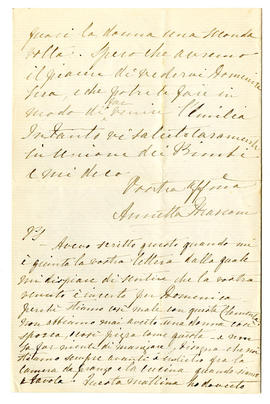 quasi la donna una seconda
volta. Spero che avremo
il piacere di vedervi Domenica
sera, e che potrete fare in
modo di far venire l'Emilia
Intanto vi saluto caramente
in unione dei Bimbi
e mi dico
Vostra affma
Annetta
PS
Avevo scritto questo quando mi
è giunta la vostra lettera dalla quale
mi dispiace di sentire che la vostra
venuta è incerta per Domenica
perché stiamo così male con questa
non abbiamo mai avuto una donna così
sporca, così pigra come questa e non
sa far niente di mangiare, bisogna che
stiamo sempre avanti e indietro fra la
camera da pranzo e la cucina quando siamo
a tavola. Questa mattina ho dovuto